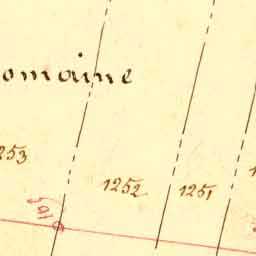 omaine
253
1252
1251